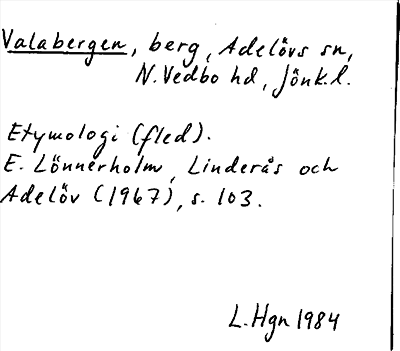 Valabergen, berg, Adelövs sn,
N. Vedbo hd, Jönk. l.
Etymologi (fled).
E. Lönnerholm, Linderås och
Adelöv (1967), s. 103.
L. Hgn 1984